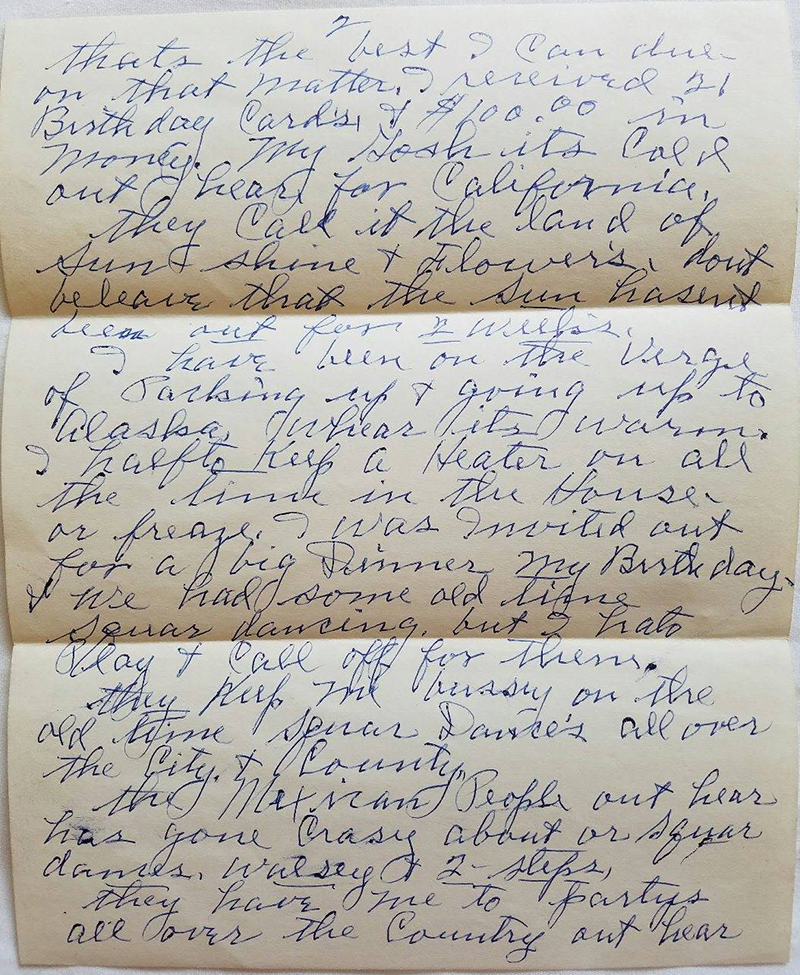 2
thats the best I Can due
on that matter. I received 21
Birthday Card's, & $100.00 in
money. My Gosh its Cold
out hear for California.
they Call it the land of
Sun shine & Flower's. dont
beleave that the Sun hasent
been out for 2 weeks.
I have been on the Verge
of Packing up & going up to
Alaska. Whear its warm.
I halfto Keep a Heater on all
the time in the House
or freaze. I was Invited out
for a big Dinner My Birthday
& we had some old time
Squar dancing. but I hato
Play & Call off for them.
they Keep me bussy on the
old time Squar Dance's all over
the City & County.
the Mexican People out hear
has gone Crasy about or Squar
dances. Walsey & 2-steps,
they have me to partys
all over the Country out hear